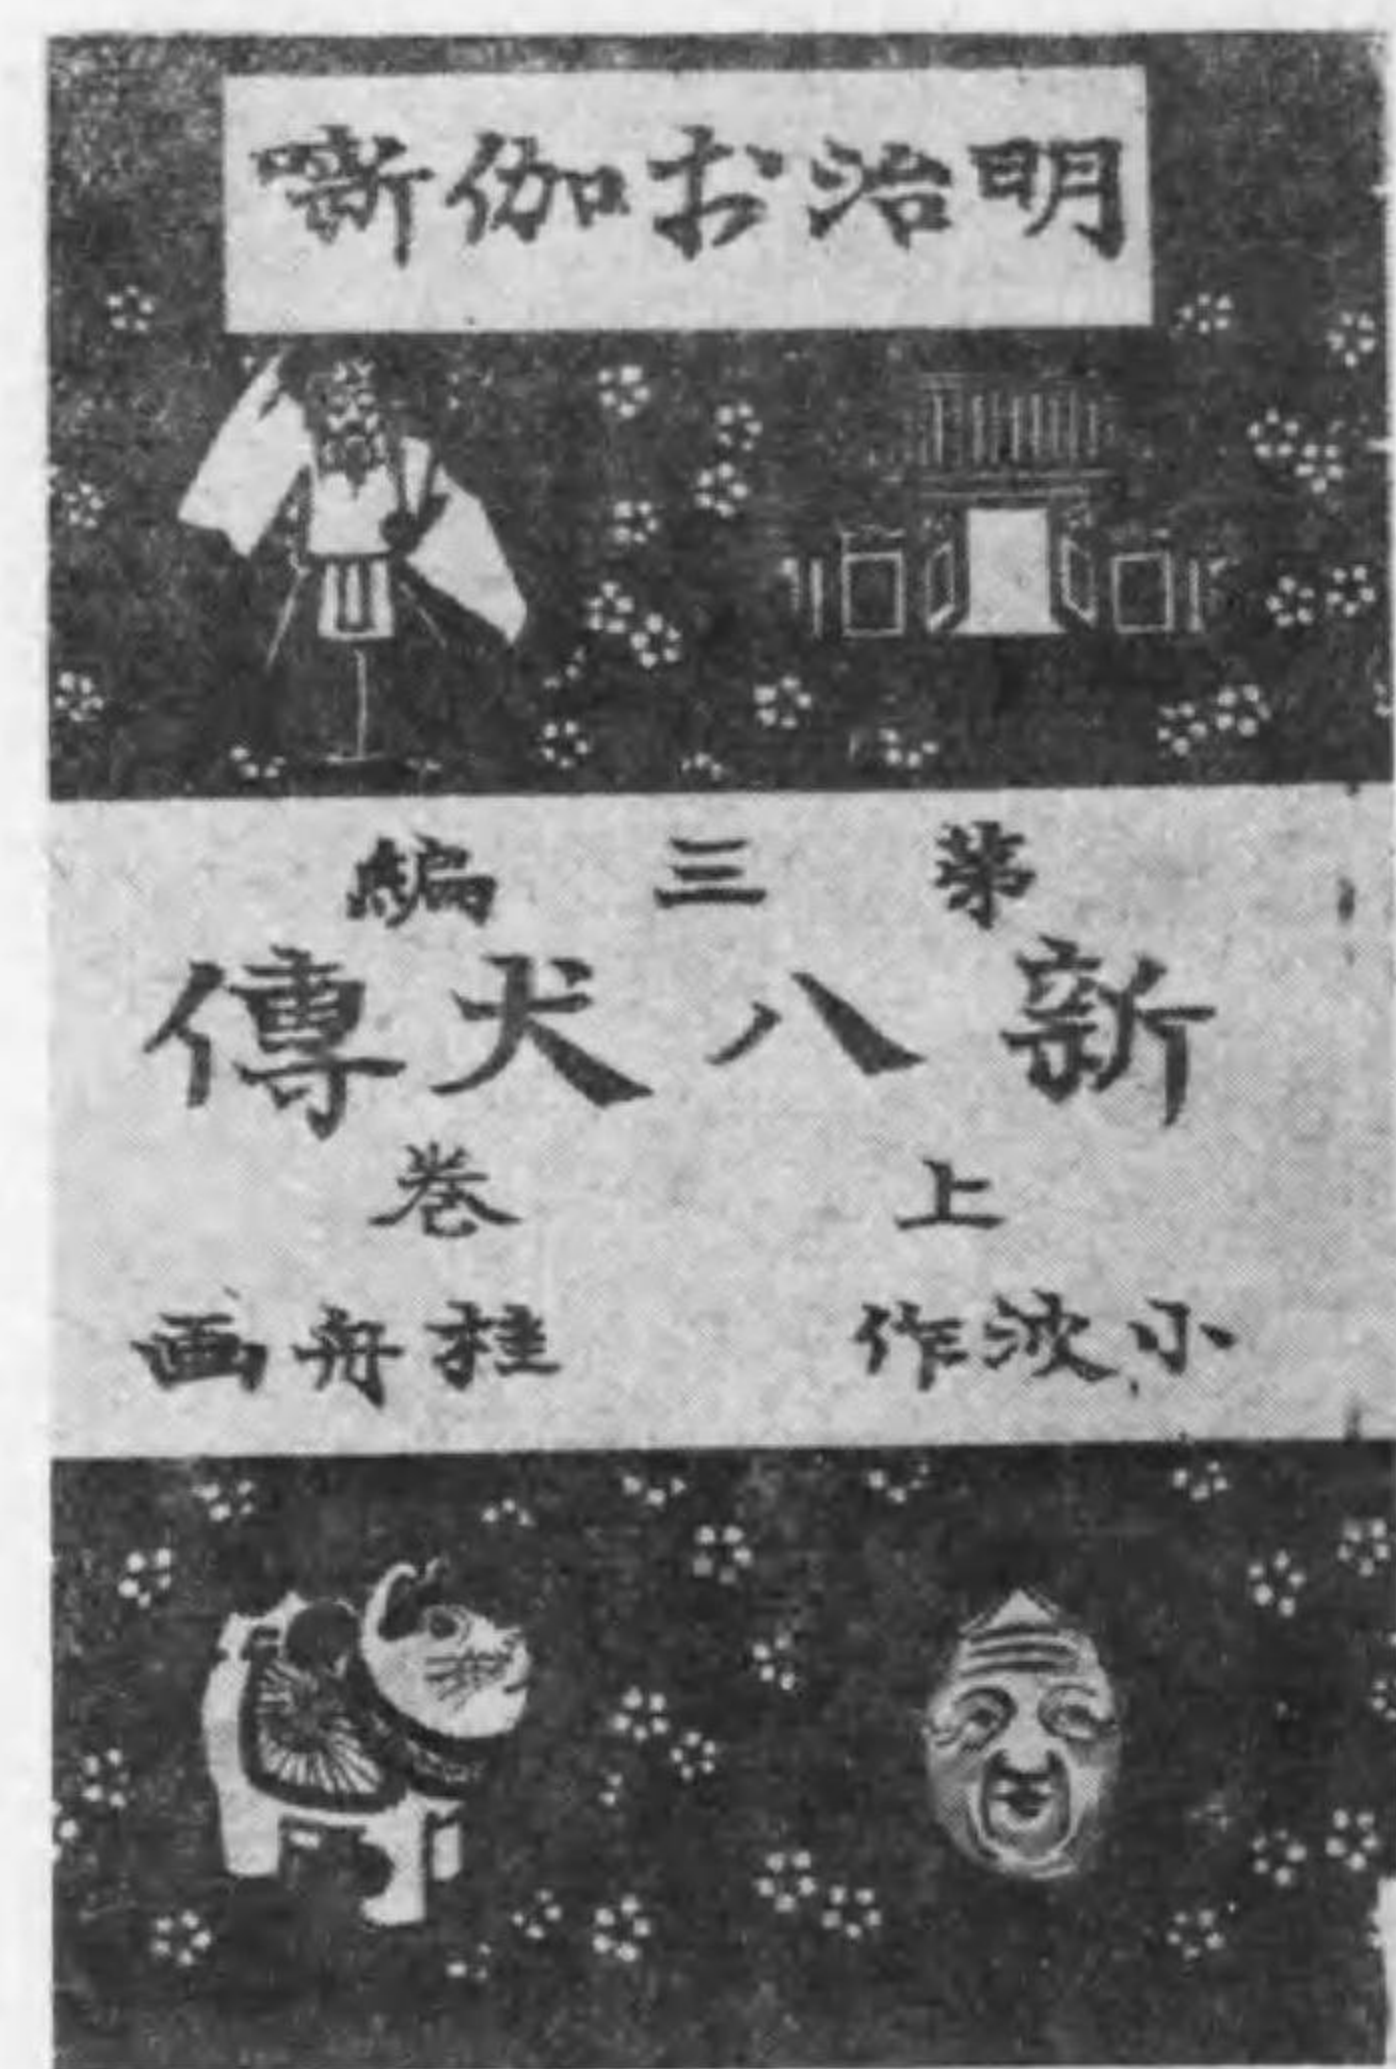 明治お伽噺
第三編
新八犬傳
上巻
小波作
桂舟画